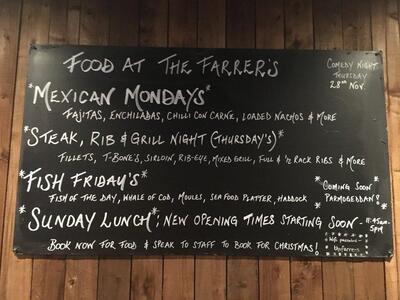 Food at The Farrer's
Comedy Night
Thursday
28th Nov.
*Mexican Mondays*
Fajitas, Enchiladas, Chilli con Carne, Loaded Nachos & more
*Steak, Rib & Grill Night (Thursday's)*
Fillets, T-Bone's, Sirloin, Rib-eye, Mixed Grill, Full & 1/2 Rack Ribs & more
*Fish Friday's*
Fish of the Day, Whale of Cod, Moules, Sea Food Platter, Haddock
*Coming Soon*
Parmogeddan?
*Sunday Lunch*; New Opening Times Starting Soon - 11:45am-
5pm
Book now for food & speak to staff to book for Christmas!
Wifi password